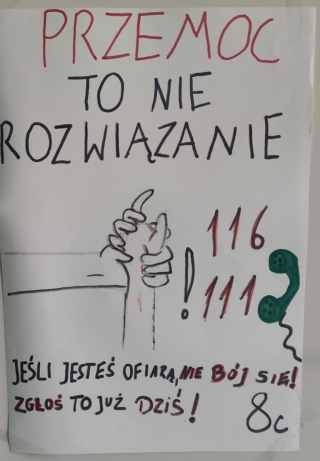 PRZEMOC
TO NIE
ROZWIĄZANIE
116
! 111
JEŚLI JESTEŚ OFIARĄ, NIE BÓJ SIĘ!
ZGŁOŚ TO JUŻ DZIŚ!
8c